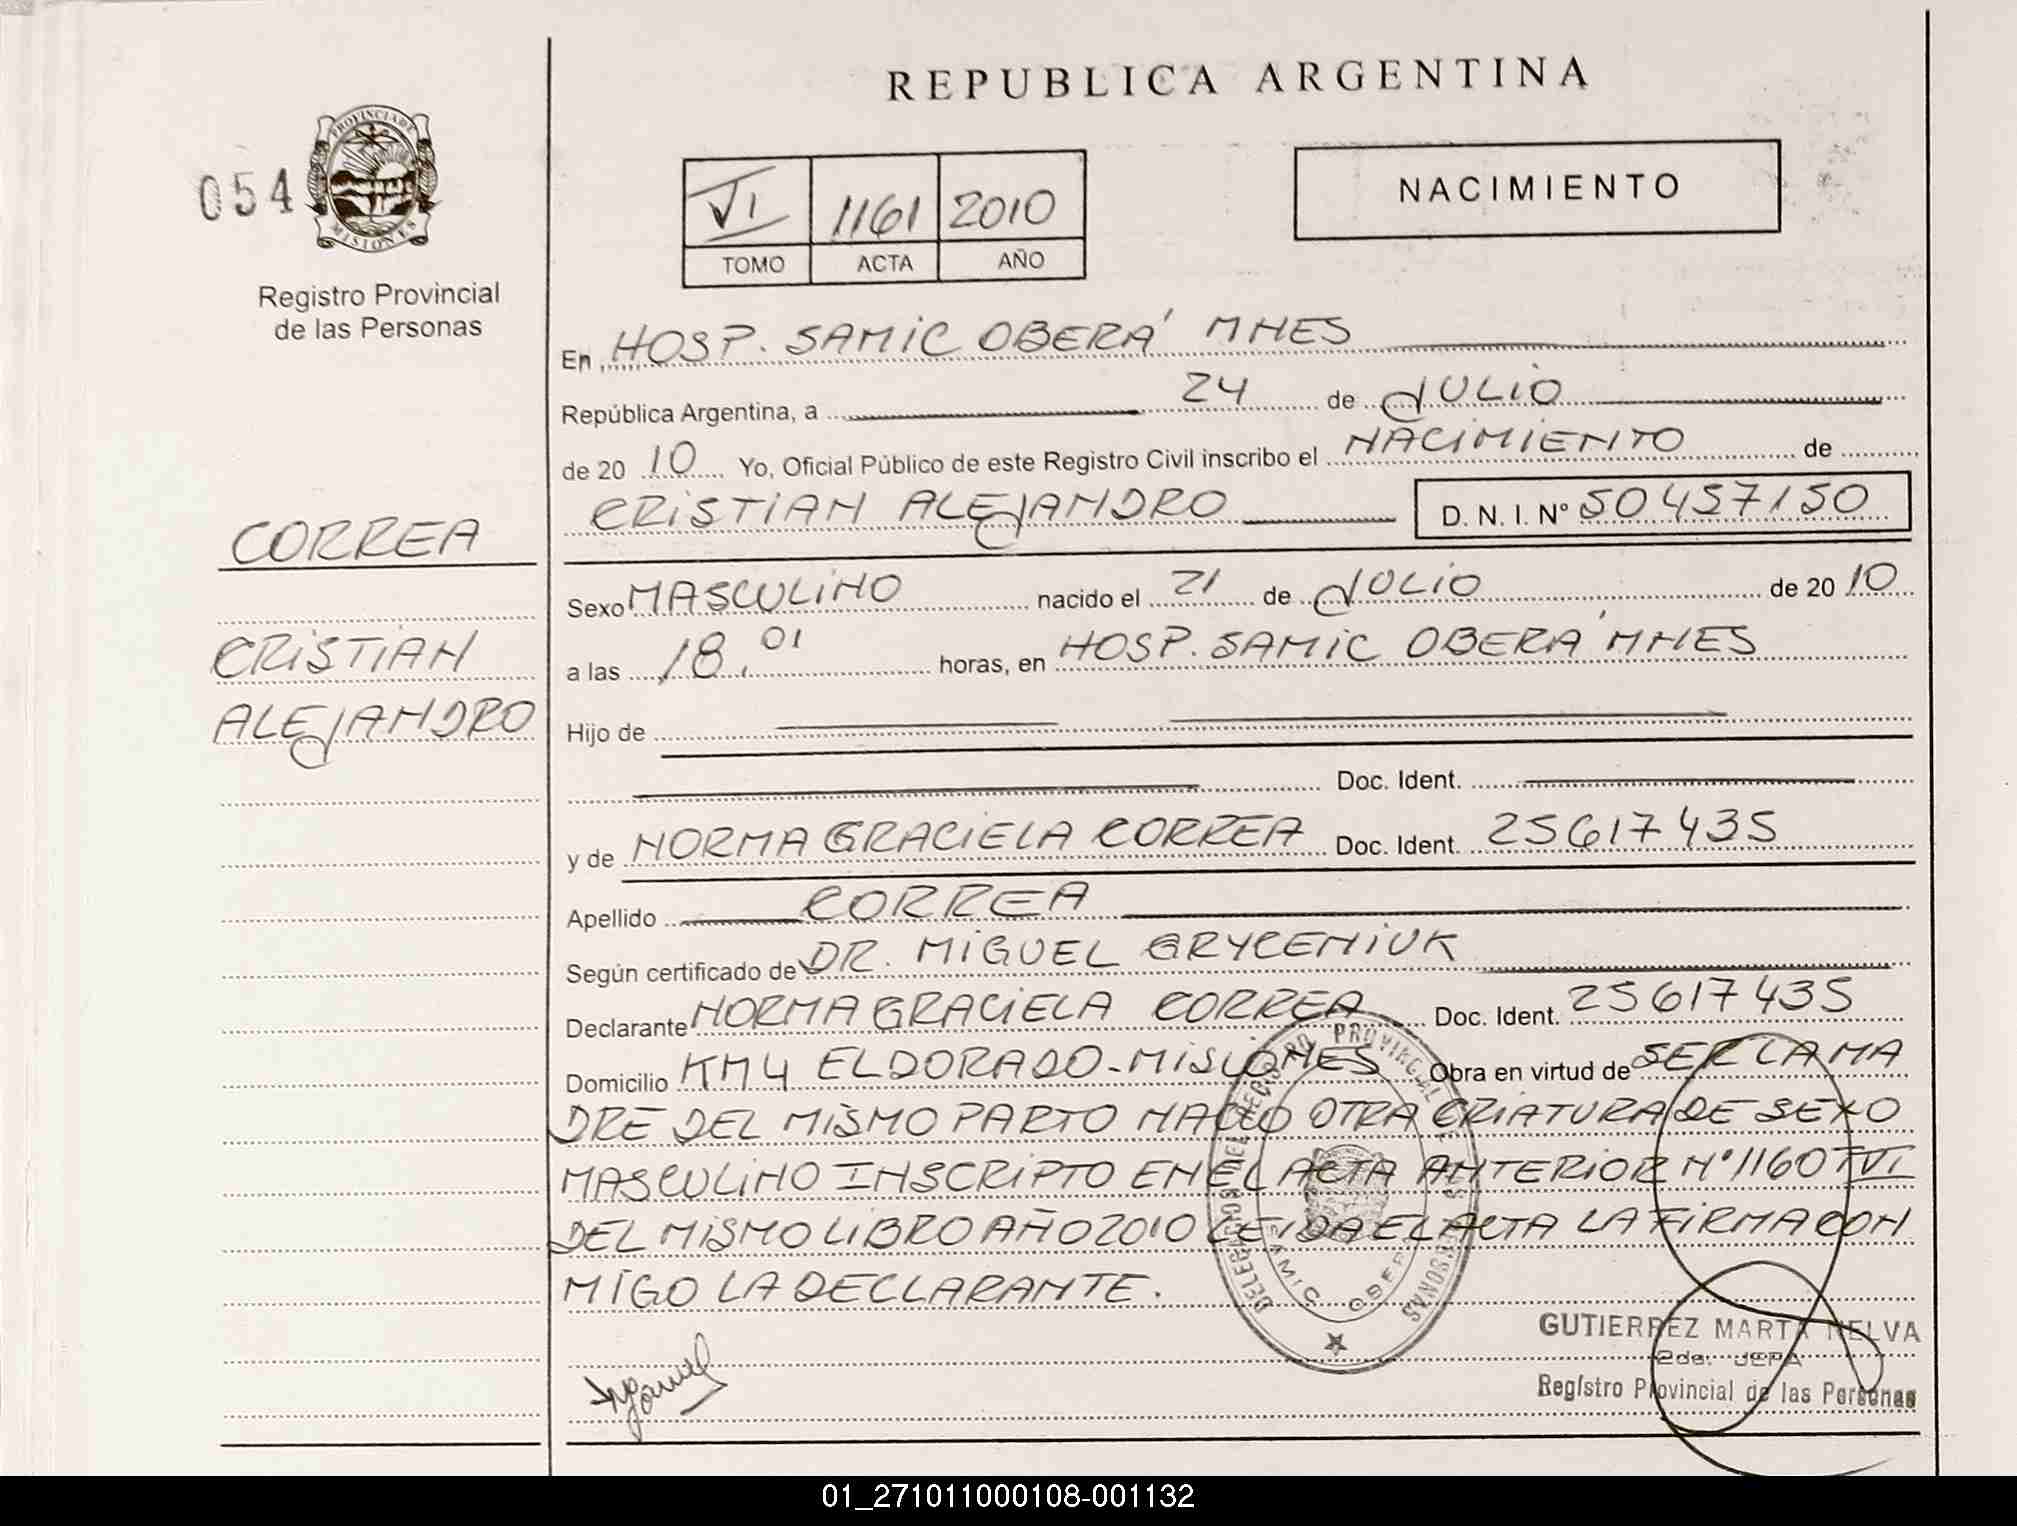 REPUBLICA ARGENTINA
054
PROVINCIA DE
MISIONES
Registro Provincial
de las Personas
VI 1161 2010
TOMO ACTA AÑO
NACIMIENTO
En HOSP. SAMIC OBERÁ MNES
República Argentina, a 24 de JULIO
de 20 10 Yo, Oficial Público de este Registro Civil inscribo el NACIMIENTO de
CRISTIAN ALEJANDRO D. N. I. Nº 50457150
CORREA
CRISTIAN
ALEJANDRO
Sexo MASCULINO nacido el 21 de JULIO de 20 10
a las 18.01 horas, en HOSP. SAMIC OBERÁ MNES
Hijo de
Doc. Ident.
y de NORMA GRACIELA CORREA Doc. Ident. 25617435
Apellido CORREA
Según certificado de DR. MIGUEL GRYCENIUK
Declarante NORMA GRACIELA CORREA Doc. Ident. 25617435
Domicilio KM 4 ELDORADO-MISIONES Obra en virtud de SER LA MA
DRE DEL MISMO PARTO NACIO OTRA CRIATURA DE SEXO
MASCULINO INSCRIPTO EN EL ACTA ANTERIOR Nº 1160 TVI
DEL MISMO LIBRO AÑO 2010 LEIDA EL ACTA LA FIRMA CON
MIGO LA DECLARANTE.
DELEGACION DEL REGISTRO PROVINCIAL DE LAS PERSONAS
SAMIC OBERA
GUTIERREZ MARTA NELVA
2da. JEFA
Registro Provincial de las Personas
01_271011000108-001132